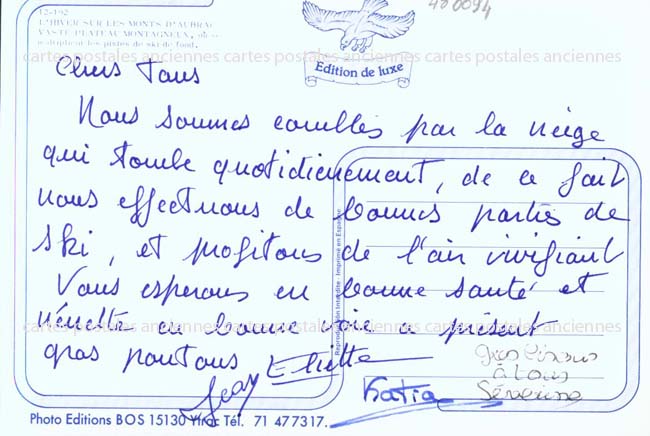 12-192
480094
L'HIVER SUR LES MONTS D'AUBRAC
VASTE PLATEAU MONTAGNEUX, où se
multiplient les pistes de ski de fond.
cartes postales anciennes cartes postales anciennes cartes postales anciennes
Edition de luxe
Chers Tous
Nous sommes comblés par la neige
qui tombe quotidiennement, de ce fait
nous effectuons de bonnes parties de
ski, et profitons de l'air vivifiant
Vous esperons en bonne santé et
cartes postales anciennes cartes postales anciennes cartes postales anciennes
en bonne voie a présent
gros poutous Eliette
Jean
Katia
Gros bisous
à tous
Séverine
Reproduction Interdite - Imprimé en Espagne
Photo Editions BOS 15130 Ytrac Tél. 71 477317.